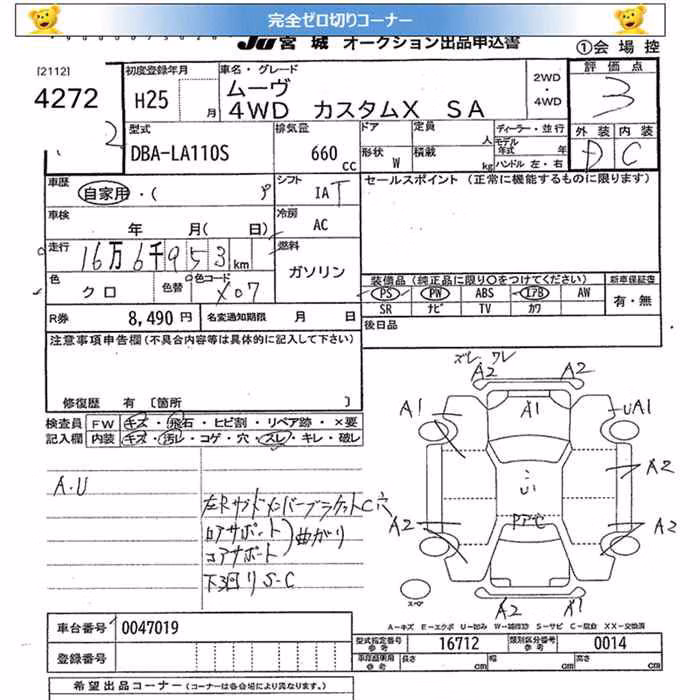 完全ゼロ切りコーナー
JU 宮城 オークション出品申込書
①会場控
[2112]
4272
初度登録年月
H25 月
車名・グレード
ムーヴ
4WD カスタムX SA
2WD・4WD
評価点
3
外装 内装
D C
型式
DBA-LA110S
排気量
660 CC
ドア
定員 人
形状 W
積載 kg
ディーラー・並行
モデル年式 年
ハンドル 左・右
車歴
自家用・( )
シフト
IAT
セールスポイント (正常に機能するものに限ります)
車検 年 月( 日)
冷房
AC
走行
16万6千953km
燃料
ガソリン
色
クロ
色替
色コード
X07
装備品(純正品に限り○をつけてください)
新車保証書
PS PW ABS エアB AW
SR ナビ TV カワ
有・無
R券 8,490 円
名変通知期限 月 日
後日品
注意事項申告欄(不具合内容等は具体的に記入して下さい)
修復歴 有 [箇所 ]
検査員 FW キズ・飛石・ヒビ割・リペア跡・×要
記入欄 内装 キズ・汚レ・コゲ・穴・スレ・キレ・破レ
A・U
コアサポート
曲がり
下回りS-C
ズレ、ワレ
A2 A2
A1 A1 UA1
A2
A2 A2
A2 A1
スペア
A-キズ E-エクボ U-凹み W-補修跡 S-サビ C-腐食 XX-交換済
車台番号 0047019
型式指定番号 参考 16712
類別区分番号 参考 0014
登録番号
車庫証明用 参考
長さ cm
幅 cm
高さ cm
希望出品コーナー(コーナーは各会場により異なります。)